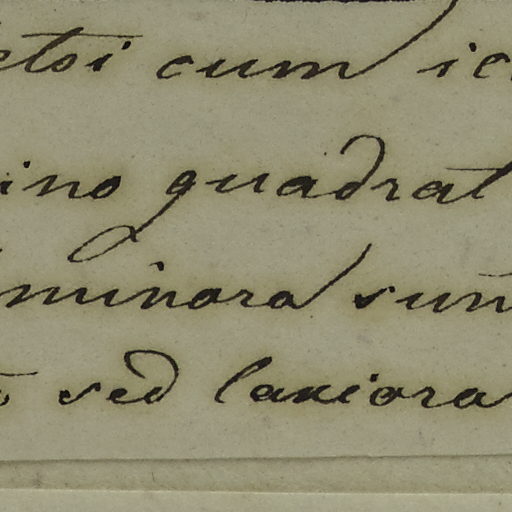 etsi cum ic
ino quadrat
minora sun
sed laxiora